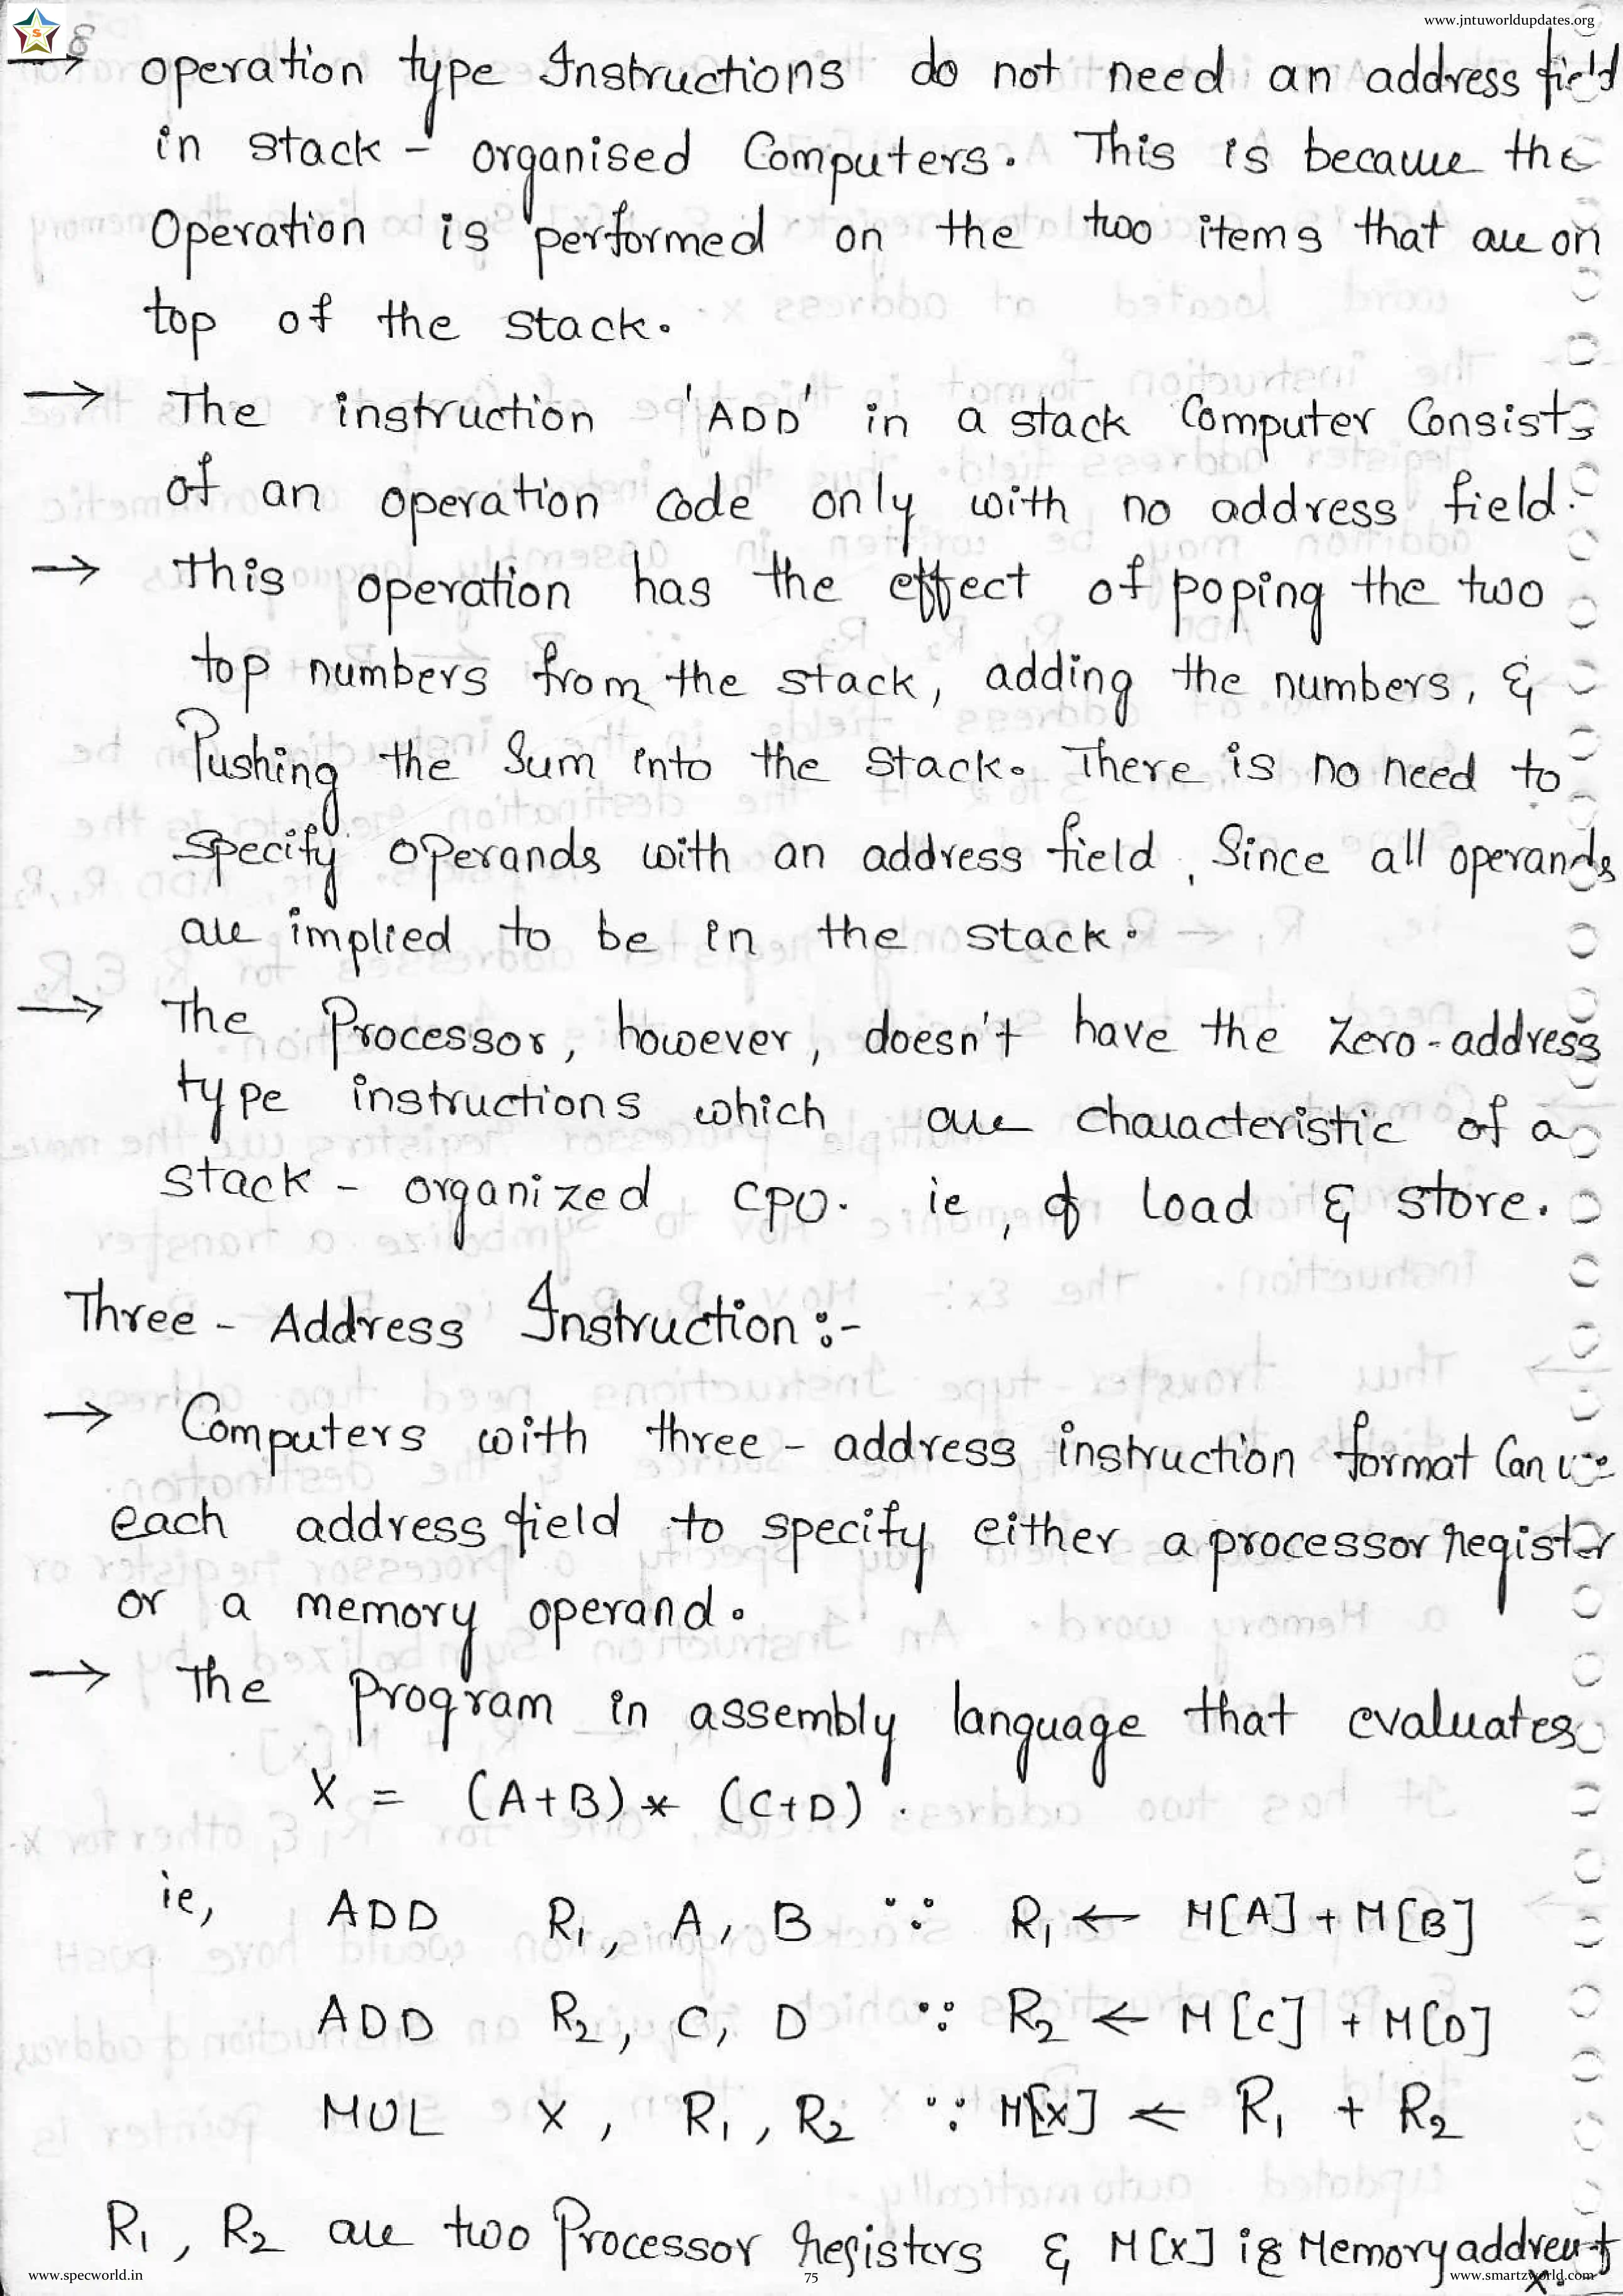 www.jntuworldupdates.org
S
→ operation type Instructions do not need an address field
in stack - organised Computers. This is because the
Operation is performed on the two items that are on
top of the stack.
→ The instruction 'ADD' in a stack Computer Consists
of an operation code only with no address field.
→ This operation has the effect of poping the two
top numbers from the stack, adding the numbers, &
Pushing the Sum into the stack. There is no need to
specify operands with an address field, Since all operands
are implied to be in the stack.
→ The Processor, however, doesn't have the zero-address
type instructions which are characteristic of a
stack - organized CPU. ie, of Load & store.
Three - Address Instruction :-
→ Computers with three - address instruction format Can use
each address field to specify either a processor register
or a memory operand.
→ The program in assembly language that evaluates
X = (A+B) * (C+D).
ie, ADD R₁, A, B ∵ R₁ ← M[A] + M[B]
ADD R₂, C, D ∵ R₂ ← M[C] + M[D]
MUL X, R₁, R₂ ∵ M[X] ← R₁ + R₂
R₁, R₂ are two Processor registers & M[X] is Memory address
x.
www.specworld.in 75 www.smartzworld.com